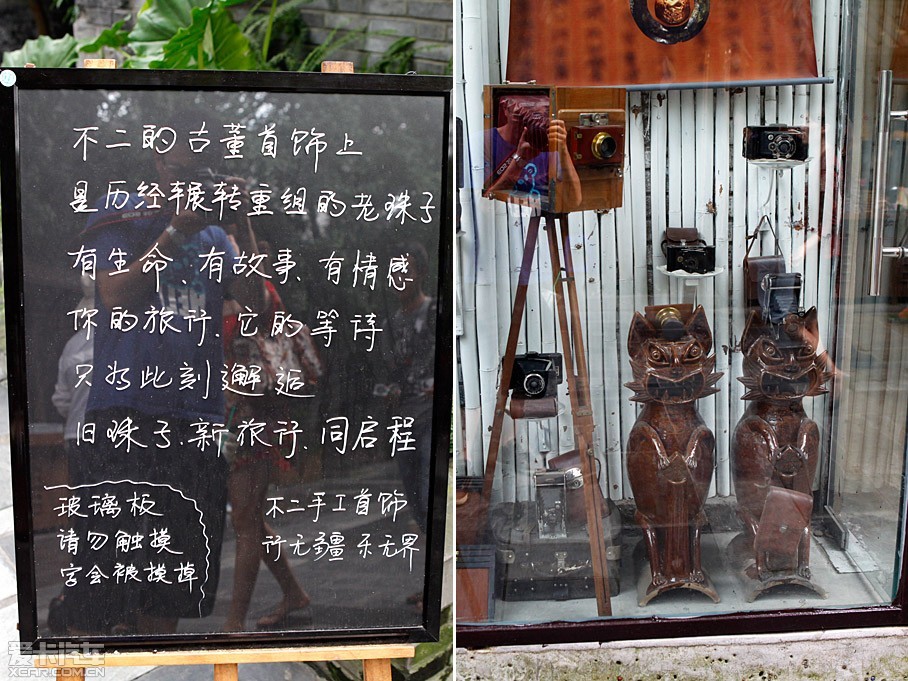 不二的古董首饰上
是历经辗转重组的老珠子
有生命、有故事、有情感
你的旅行、它的等待
只为此刻邂逅
旧珠子.新旅行.同启程
玻璃板
请勿触摸
字会被摸掉
不二手工首饰
行无疆 禾无界
爱卡汽车
XCAR.COM.CN